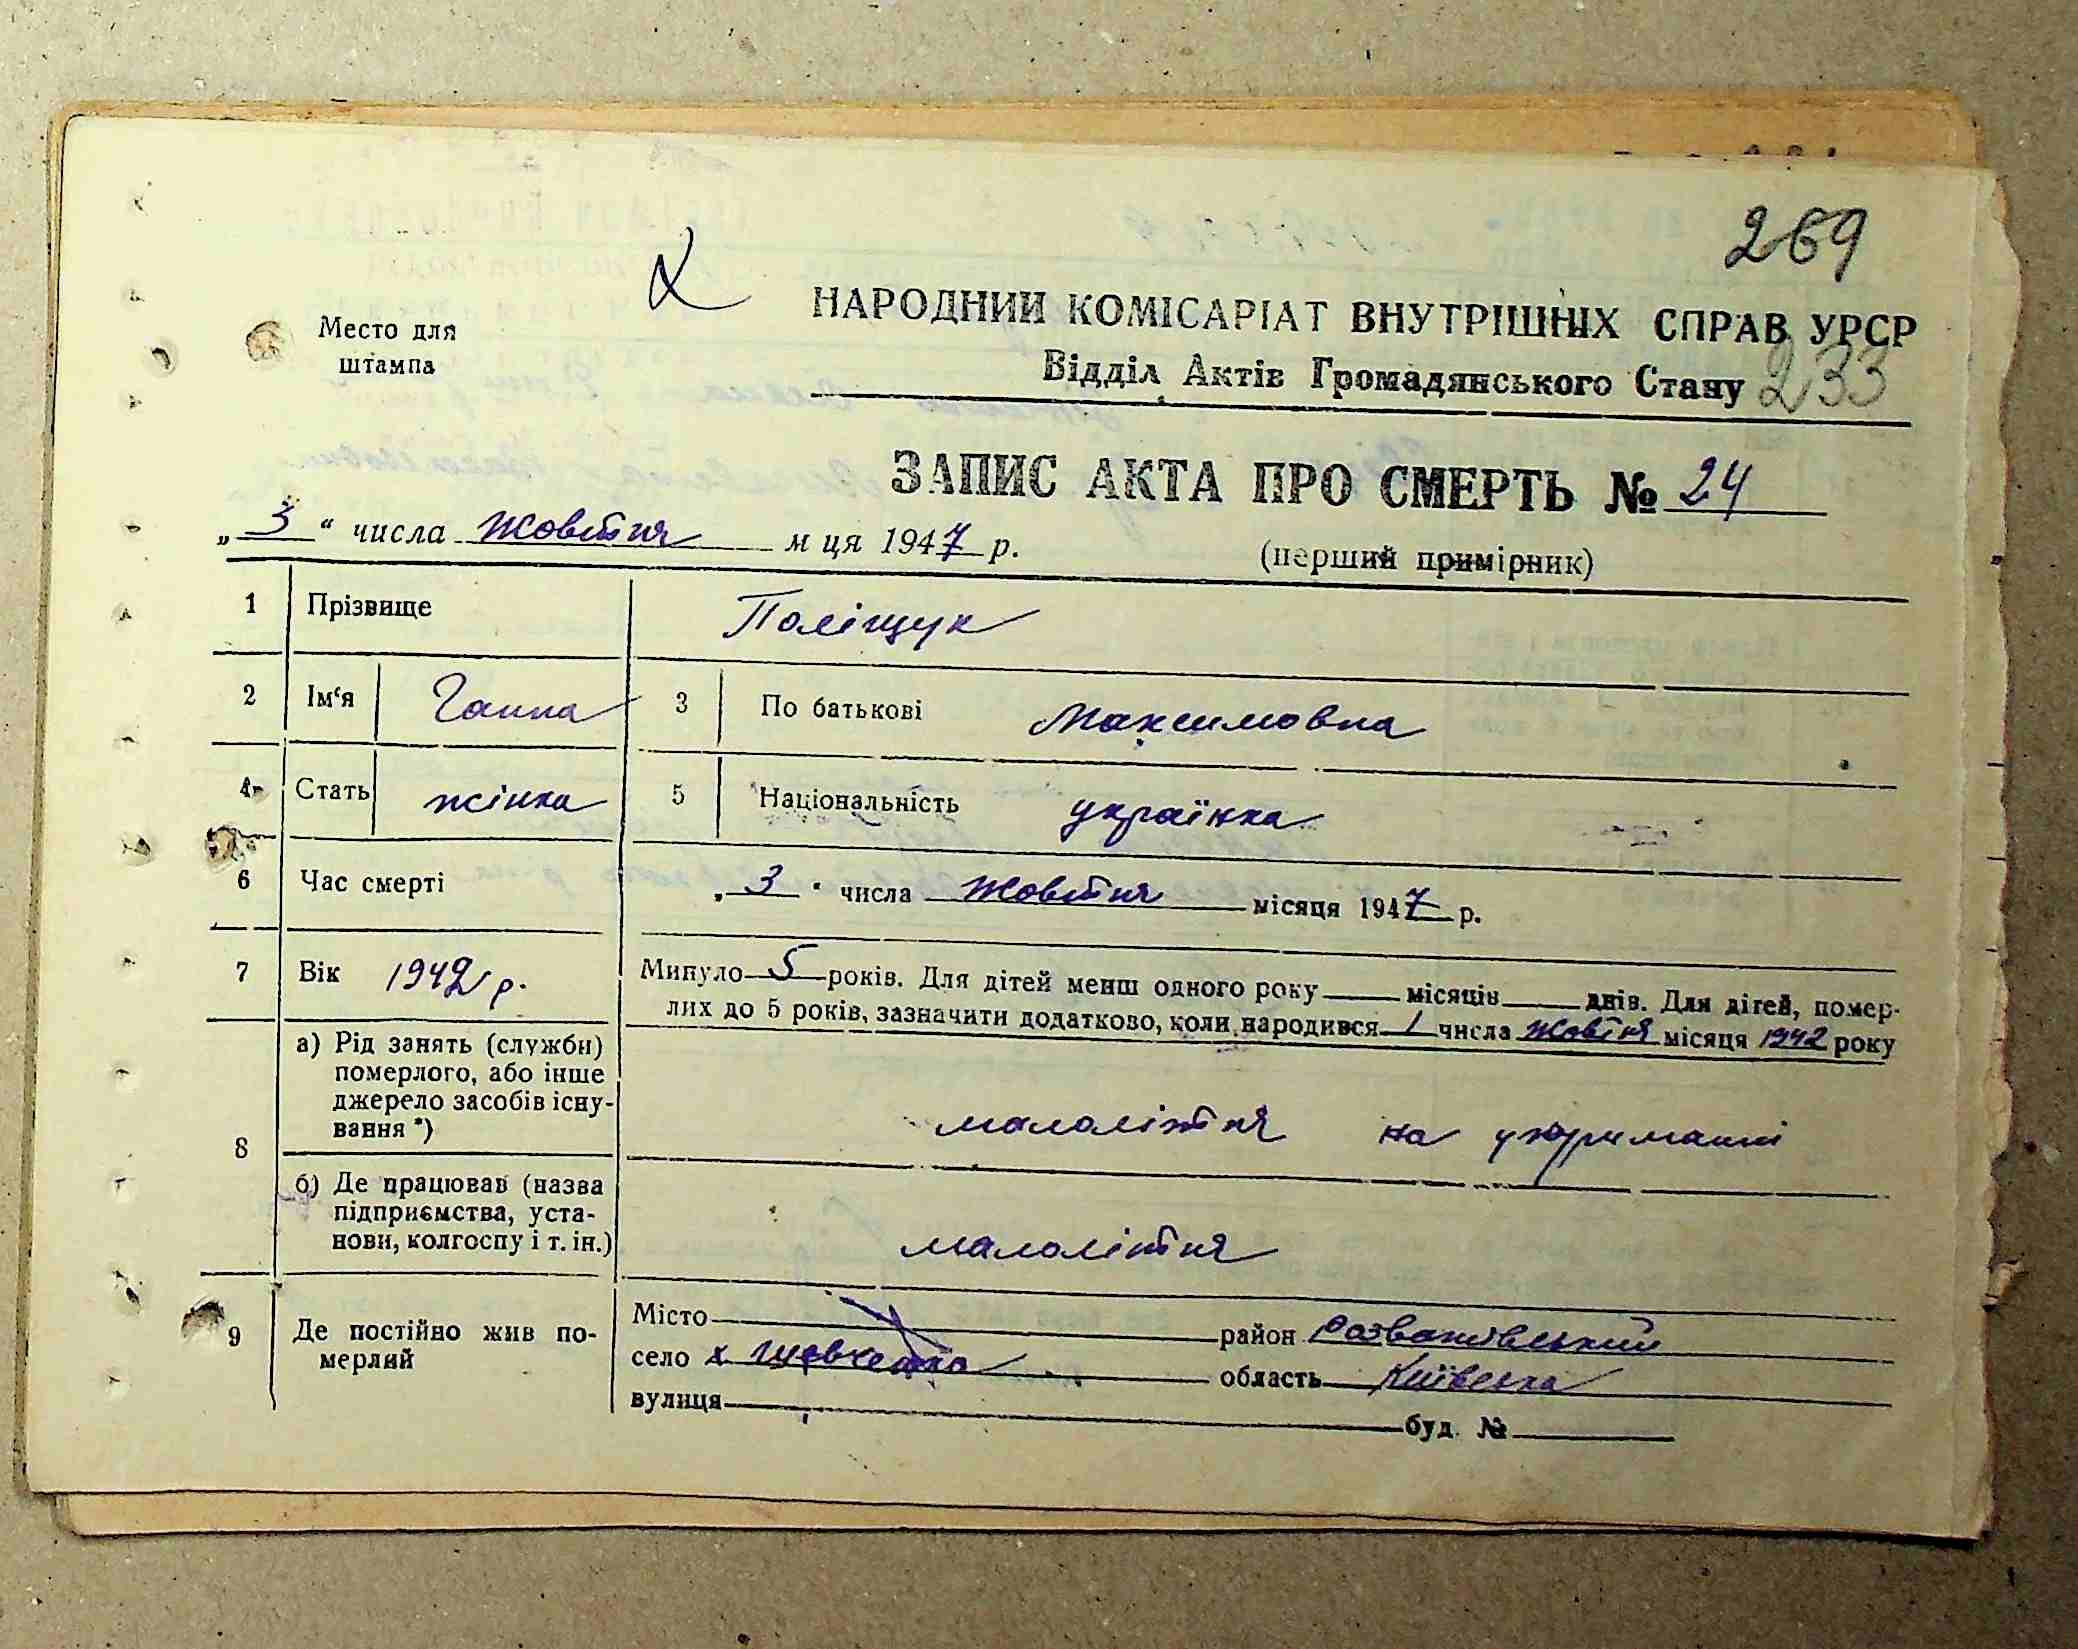 269
Место для
штампа
НАРОДНИЙ КОМІСАРІАТ ВНУТРІШНІХ СПРАВ УРСР
Відділ Актів Громадянського Стану 233
ЗАПИС АКТА ПРО СМЕРТЬ № 24
„ 3 “ числа жовтня м ця 1947 р.
(перший примірник)
1 Прізвище Поліщук
2 Ім'я Ганна 3 По батькові Максимовна
4 Стать жінка 5 Національність українка
6 Час смерті „ 3 “ числа жовтня місяця 1947 р.
7 Вік 1942 р. Минуло 5 років. Для дітей менш одного року місяців днів. Для дітей, помер-
лих до 5 років, зазначити додатково, коли народився 1 числа жовтня місяця 1942 року
8 а) Рід занять (служби)
померлого, або інше
джерело засобів існу-
вання *)
малолітня на утриманні
б) Де працював (назва
підприємства, уста-
нови, колгоспу і т. ін.)
малолітня
9 Де постійно жив по-
мерлий
Місто район Розважівський
село х Шевченко область Київська
вулиця буд. №